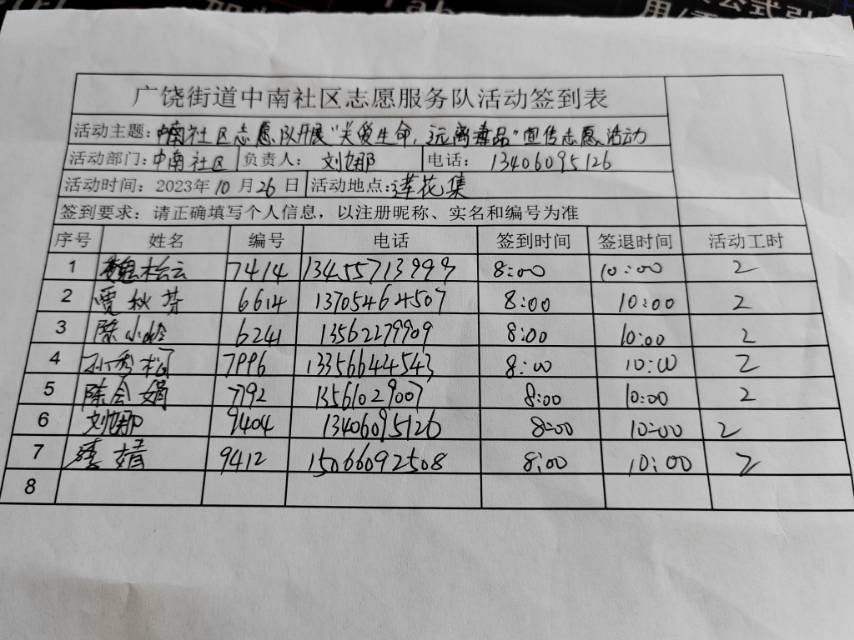 广饶街道中南社区志愿服务队活动签到表
活动主题：中南社区志愿队开展"关爱生命，远离毒品"宣传志愿活动
活动部门：中南社区 负责人： 刘旭娜 电话： 13406095126
活动时间：2023年10月26日 活动地点：莲花集
签到要求：请正确填写个人信息，以注册昵称、实名和编号为准
序号 姓名 编号 电话 签到时间 签退时间 活动工时
1 魏桧云 7414 13455713999 8:00 10:00 2
2 贾秋芬 6614 13705464507 8:00 10:00 2
3 陈小玲 6241 13562279909 8:00 10:00 2
4 孙秀松 7996 13356644543 8:00 10:00 2
5 陈会娟 7792 13561029007 8:00 10:00 2
6 刘旭娜 9404 13406095126 8:00 10:00 2
7 婧 9412 15066092508 8:00 10:00 2
8